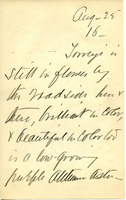 Aug - 25
16 -
Torreyi is
still in flower by
the roadside here &
there, brilliant in color,
& beautiful in color too
is a low-growing
purple Autumn Aster